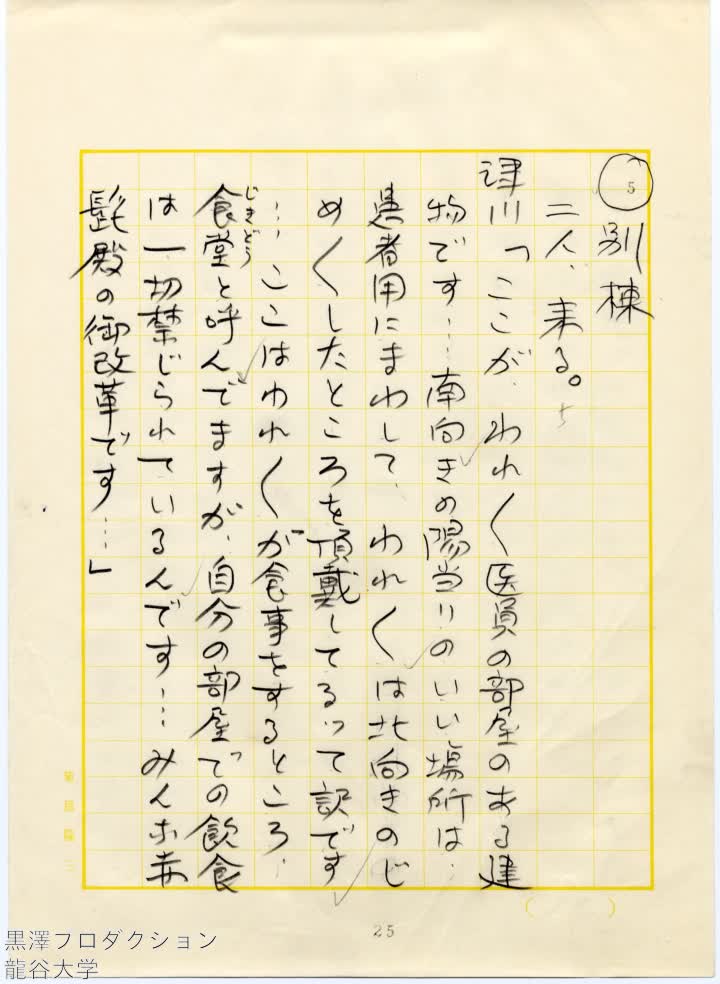 5
別棟
二人、来る。
津川「ここが、われ〳〵医員の部屋のある建
物です…南向きの陽当りのいい場所は、
患者用にまわして、われ〳〵は北向きのじ
め〳〵したところを頂戴してるって訳です
…ここはわれ〳〵が食事をするところ、
食堂と呼んでますが、自分の部屋での飲食
じきどう
は一切禁じられているんです…みんな赤
髭殿の御改革です…」
25
黒澤プロダクション
龍谷大学